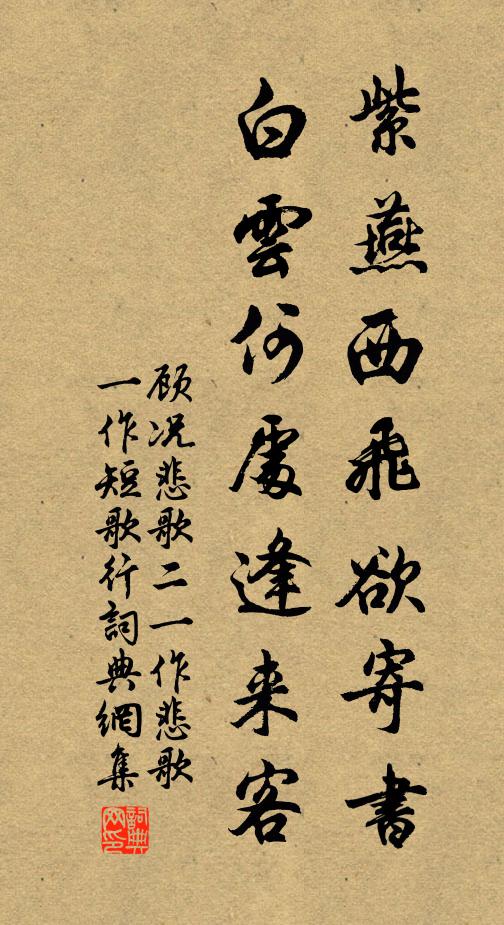 紫燕西飛欲寄書
白雲何處逢来客
顾况悲歌二一作悲歌
一作短歌行詞典網集
詞典网印